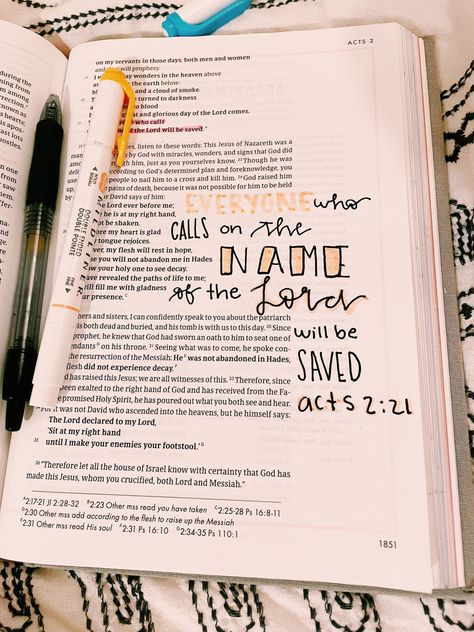 during the
ACTS 2
on my servants in those days, both men and women
will prophesy.
wonders in the heaven above
the earth below:
and a cloud of smoke.
turned to darkness
blood
great and glorious day of the Lord comes.
who calls
the Lord will be saved.
listen to these words: This Jesus of Nazareth was a
by God with miracles, wonders, and signs that God did
through him, just as you yourselves know. 23 Though he was
according to God's determined plan and foreknowledge, you
people to nail him to a cross and kill him. 24 God raised him
pains of death, because it was not possible for him to be held
David says of him:
Lord ever before me;
he is at my right hand,
not be shaken.
my heart is glad
tongue rejoices.
my flesh will rest in hope,
you will not abandon me in Hades
your holy one to see decay.
have revealed the paths of life to me;
will fill me with gladness
presence.
EVERYONE who
CALLS on THE
NAME
of the Lord
will be
SAVED
acts 2:21
and sisters, I can confidently speak to you about the patriarch
is both dead and buried, and his tomb is with us to this day. 30 Since
prophet, he knew that God had sworn an oath to him to seat one of
on his throne. 31 Seeing what was to come, he spoke con-
the resurrection of the Messiah: He was not abandoned in Hades,
flesh did not experience decay.
has raised this Jesus; we are all witnesses of this. 33 Therefore, since
been exalted to the right hand of God and has received from the Fa-
promised Holy Spirit, he has poured out what you both see and hear.
For it was not David who ascended into the heavens, but he himself says:
The Lord declared to my Lord,
'Sit at my right hand
35 until I make your enemies your footstool.'G
36 "Therefore let all the house of Israel know with certainty that God has
made this Jesus, whom you crucified, both Lord and Messiah."
A2:17-21 Jl 2:28-32 B2:23 Other mss read you have taken C2:25-28 Ps 16:8-11
D2:30 Other mss add according to the flesh to raise up the Messiah
E2:31 Other mss read His soul F2:31 Ps 16:10 G2:34-35 Ps 110:1
1851
DOUBLE ENDED
DOUBLE POINTE